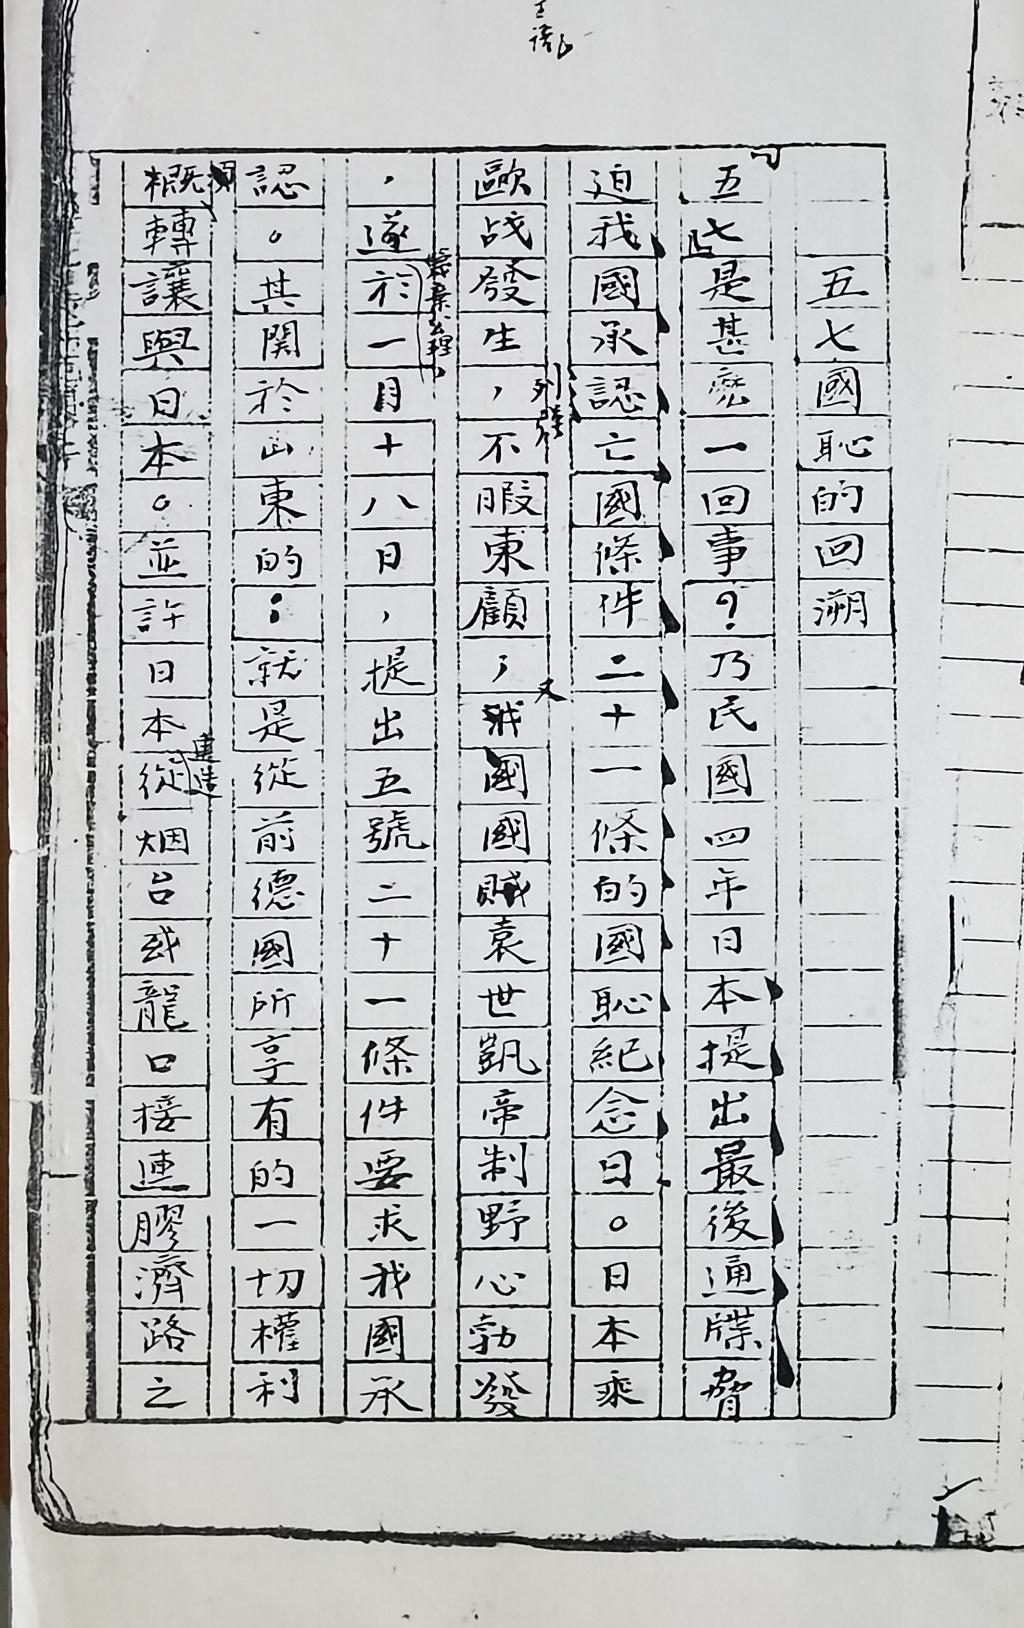 五七國恥的回溯
五七是甚麽一回事？乃民國四年日本提出最後通牒脅
迫我國承認亡國條件二十一條的國恥紀念日。日本乘
列強
歐战發生，不暇東顧，又我國國賊袁世凱帝制野心勃發
，遂於一月十八日，提出五號二十一條件要求我國承
公理，
認。其関於山東的：就是從前德國所享有的一切權利
須
概轉讓與日本。並許日本從烟台或龍口接連膠濟路之
建造